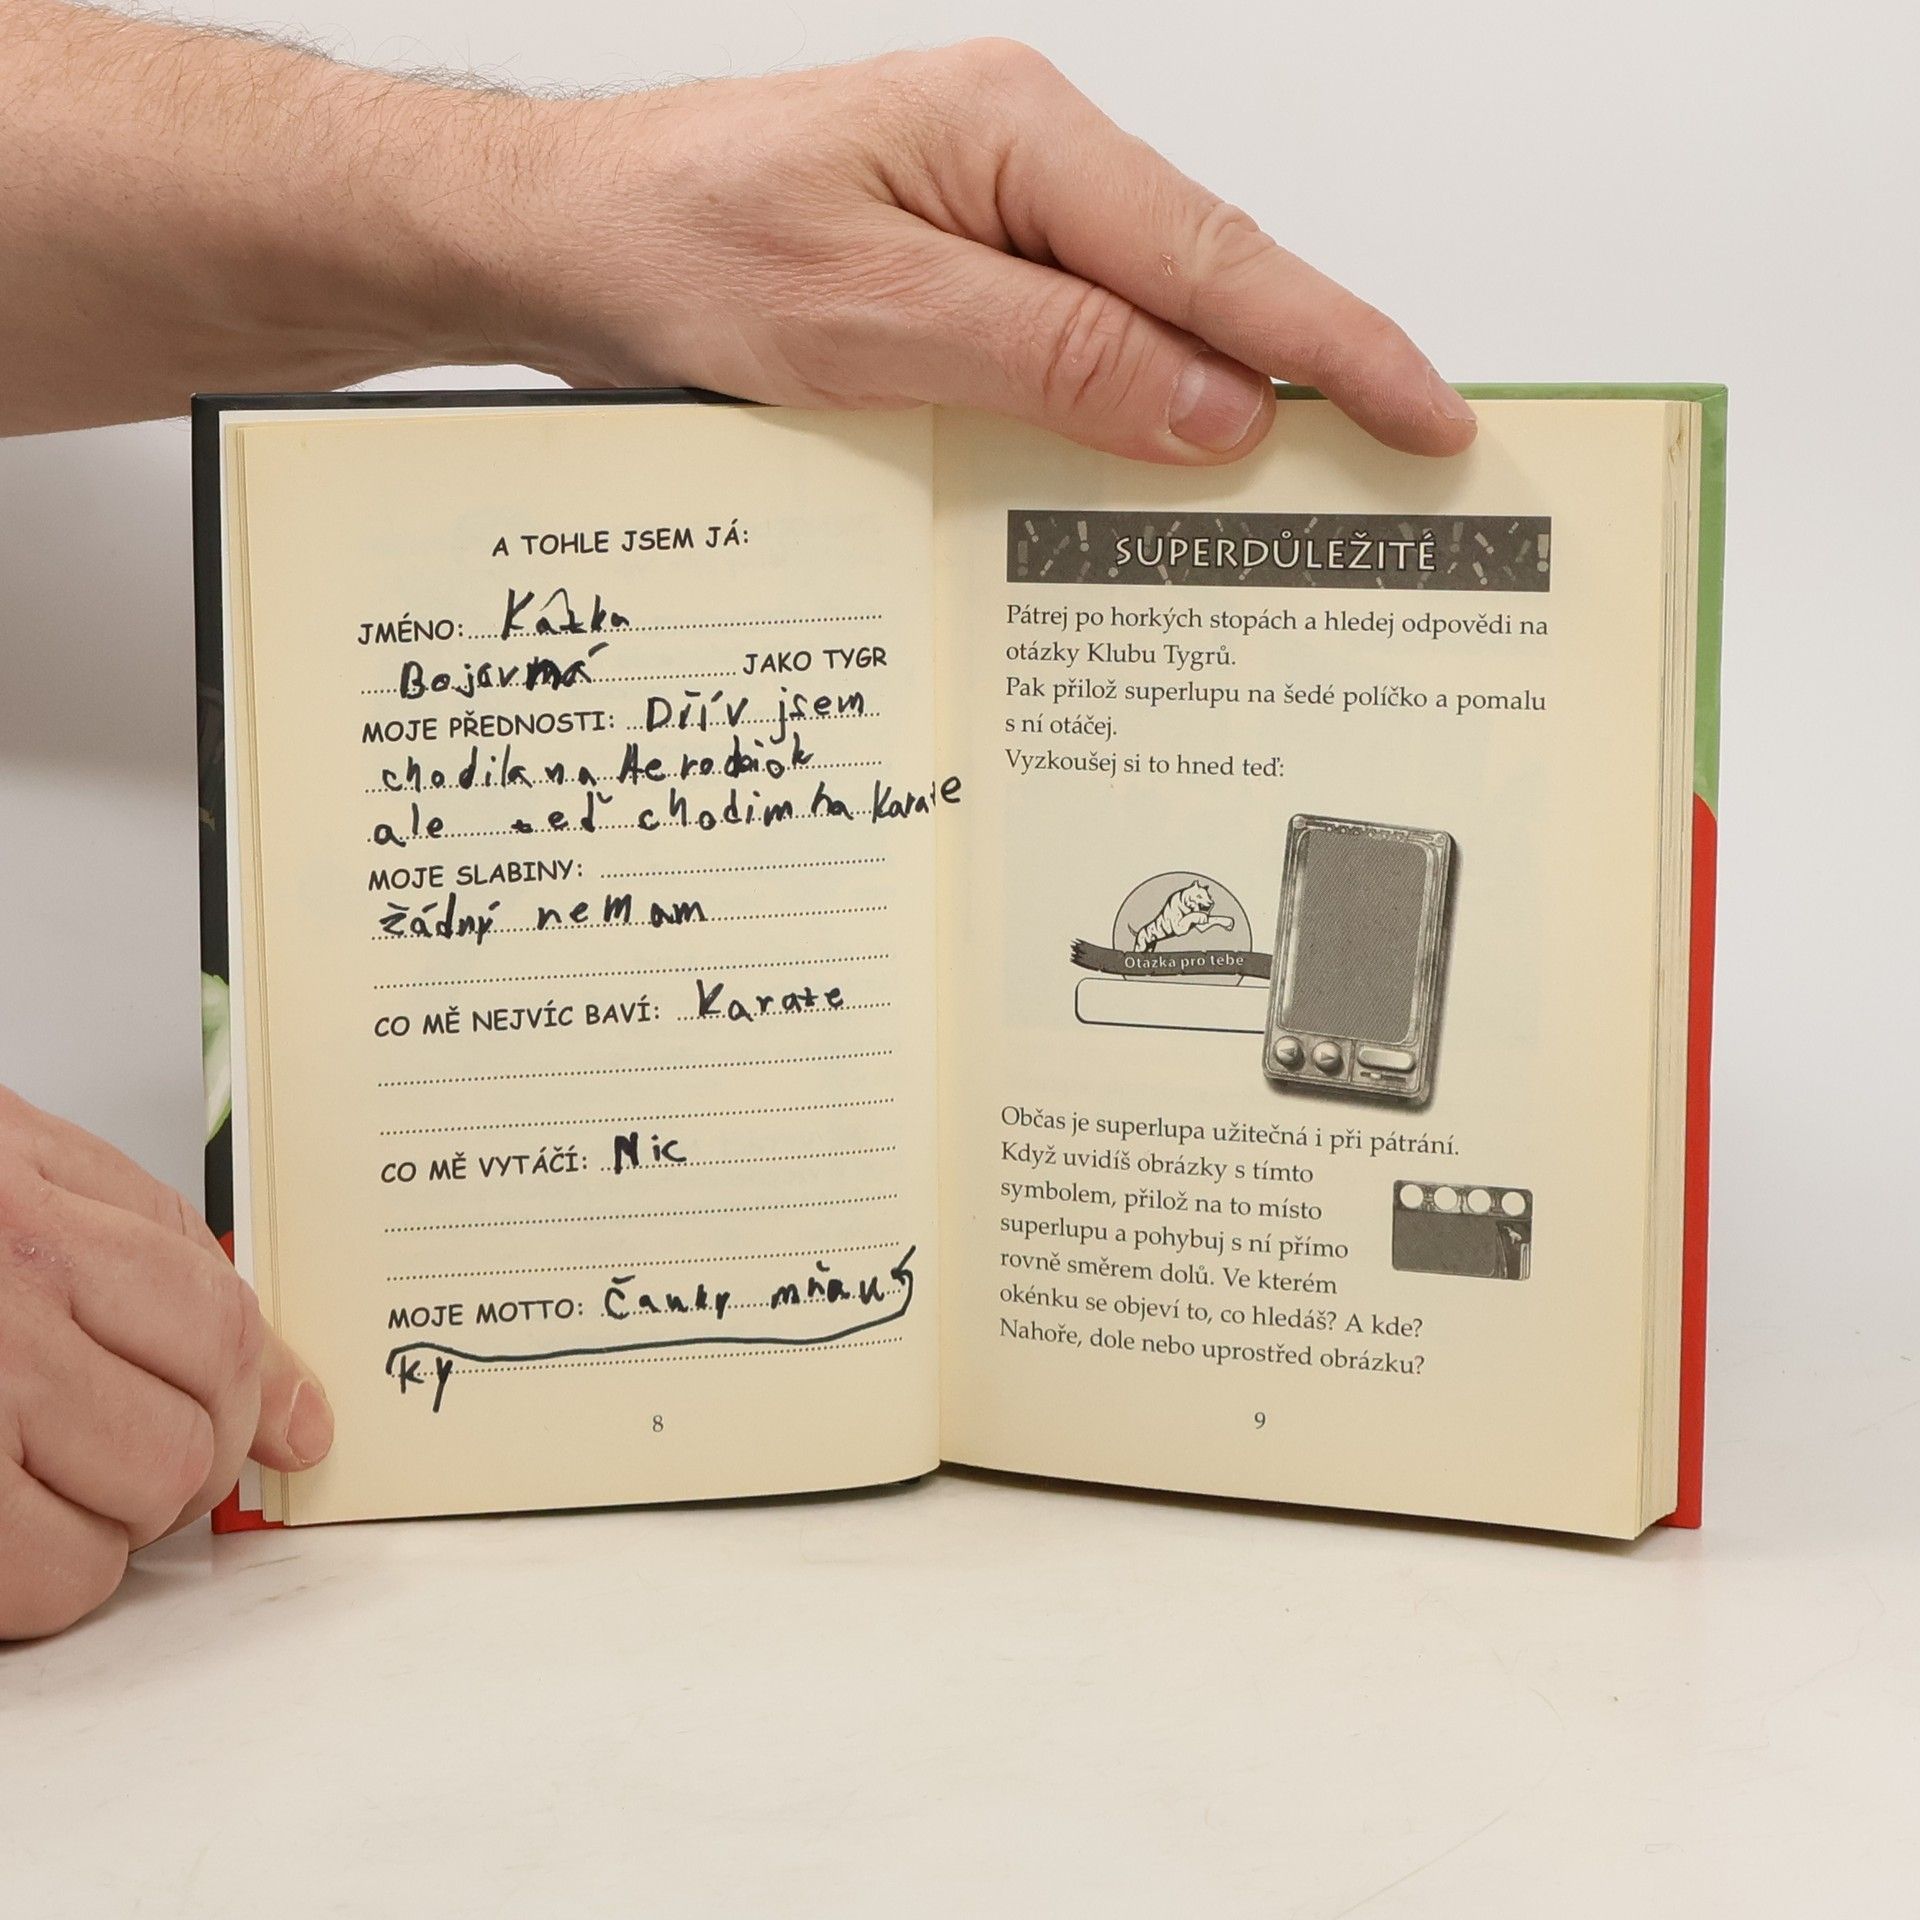 A TOHLE JSEM JÁ:
JMÉNO: Kátka
Bojovná JAKO TYGR
MOJE PŘEDNOSTI: Dřív jsem
chodila na Aerobiok
ale teď chodim na Karate
MOJE SLABINY:
žádný nemam
CO MĚ NEJVÍC BAVÍ: Karate
CO MĚ VYTÁČÍ: Nic
MOJE MOTTO: mňau
ky
8
SUPERDŮLEŽITÉ
Pátrej po horkých stopách a hledej odpovědi na
otázky Klubu Tygrů.
Pak přilož superlupu na šedé políčko a pomalu
s ní otáčej.
Vyzkoušej si to hned teď:
Otázka pro tebe
Občas je superlupa užitečná i při pátrání.
Když uvidíš obrázky s tímto
symbolem, přilož na to místo
superlupu a pohybuj s ní přímo
rovně směrem dolů. Ve kterém
okénku se objeví to, co hledáš? A kde?
Nahoře, dole nebo uprostřed obrázku?
9